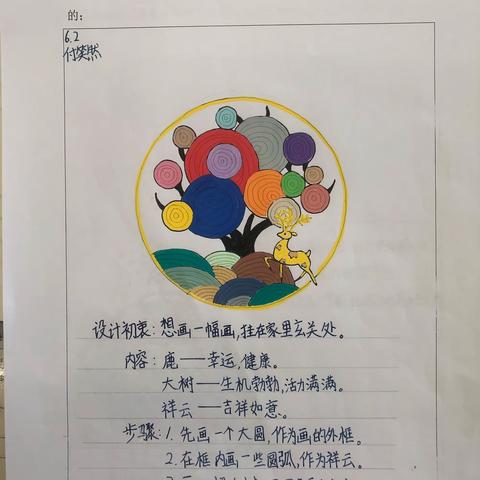 的:
6.2
付笑然
设计初衷:想画一幅画,挂在家里玄关处。
内容:鹿——幸运,健康。
大树——生机勃勃,活力满满。
祥云——吉祥如意。
步骤:1.先画一个大圆,作为画的外框。
2.在框内画一些圆弧,作为祥云。